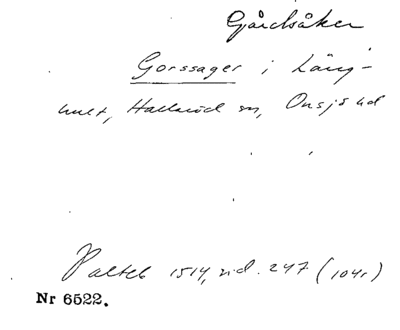 Gårdsåker
Gorssager i Läng-
hult, Hallaröd sn, Onsjö hd
Palteb 1514, sid. 247 (104r)
Nr 6522.